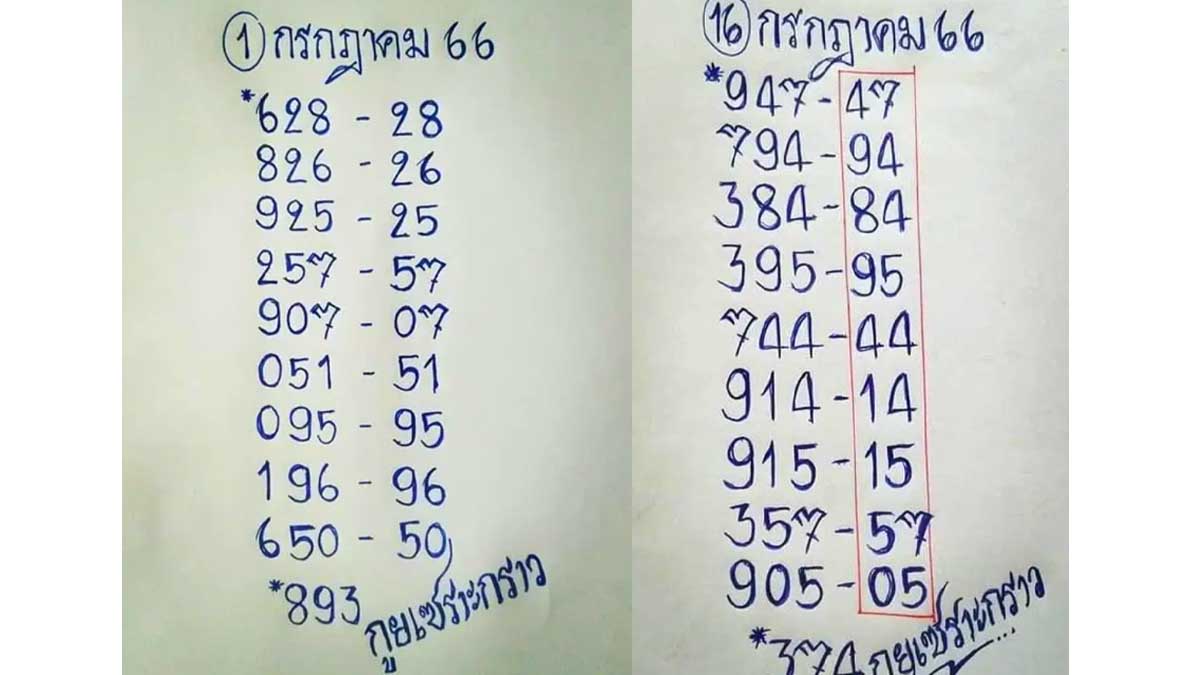 1 กรกฎาคม 66
*628 - 28
826 - 26
925 - 25
257 - 57
907 - 07
051 - 51
095 - 95
196 - 96
650 - 50
*893
กูยเซราะกราว
16 กรกฎาคม 66
*947 - 47
794 - 94
384 - 84
395 - 95
744 - 44
914 - 14
915 - 15
357 - 57
905 - 05
*374 กูยเซราะกราว...